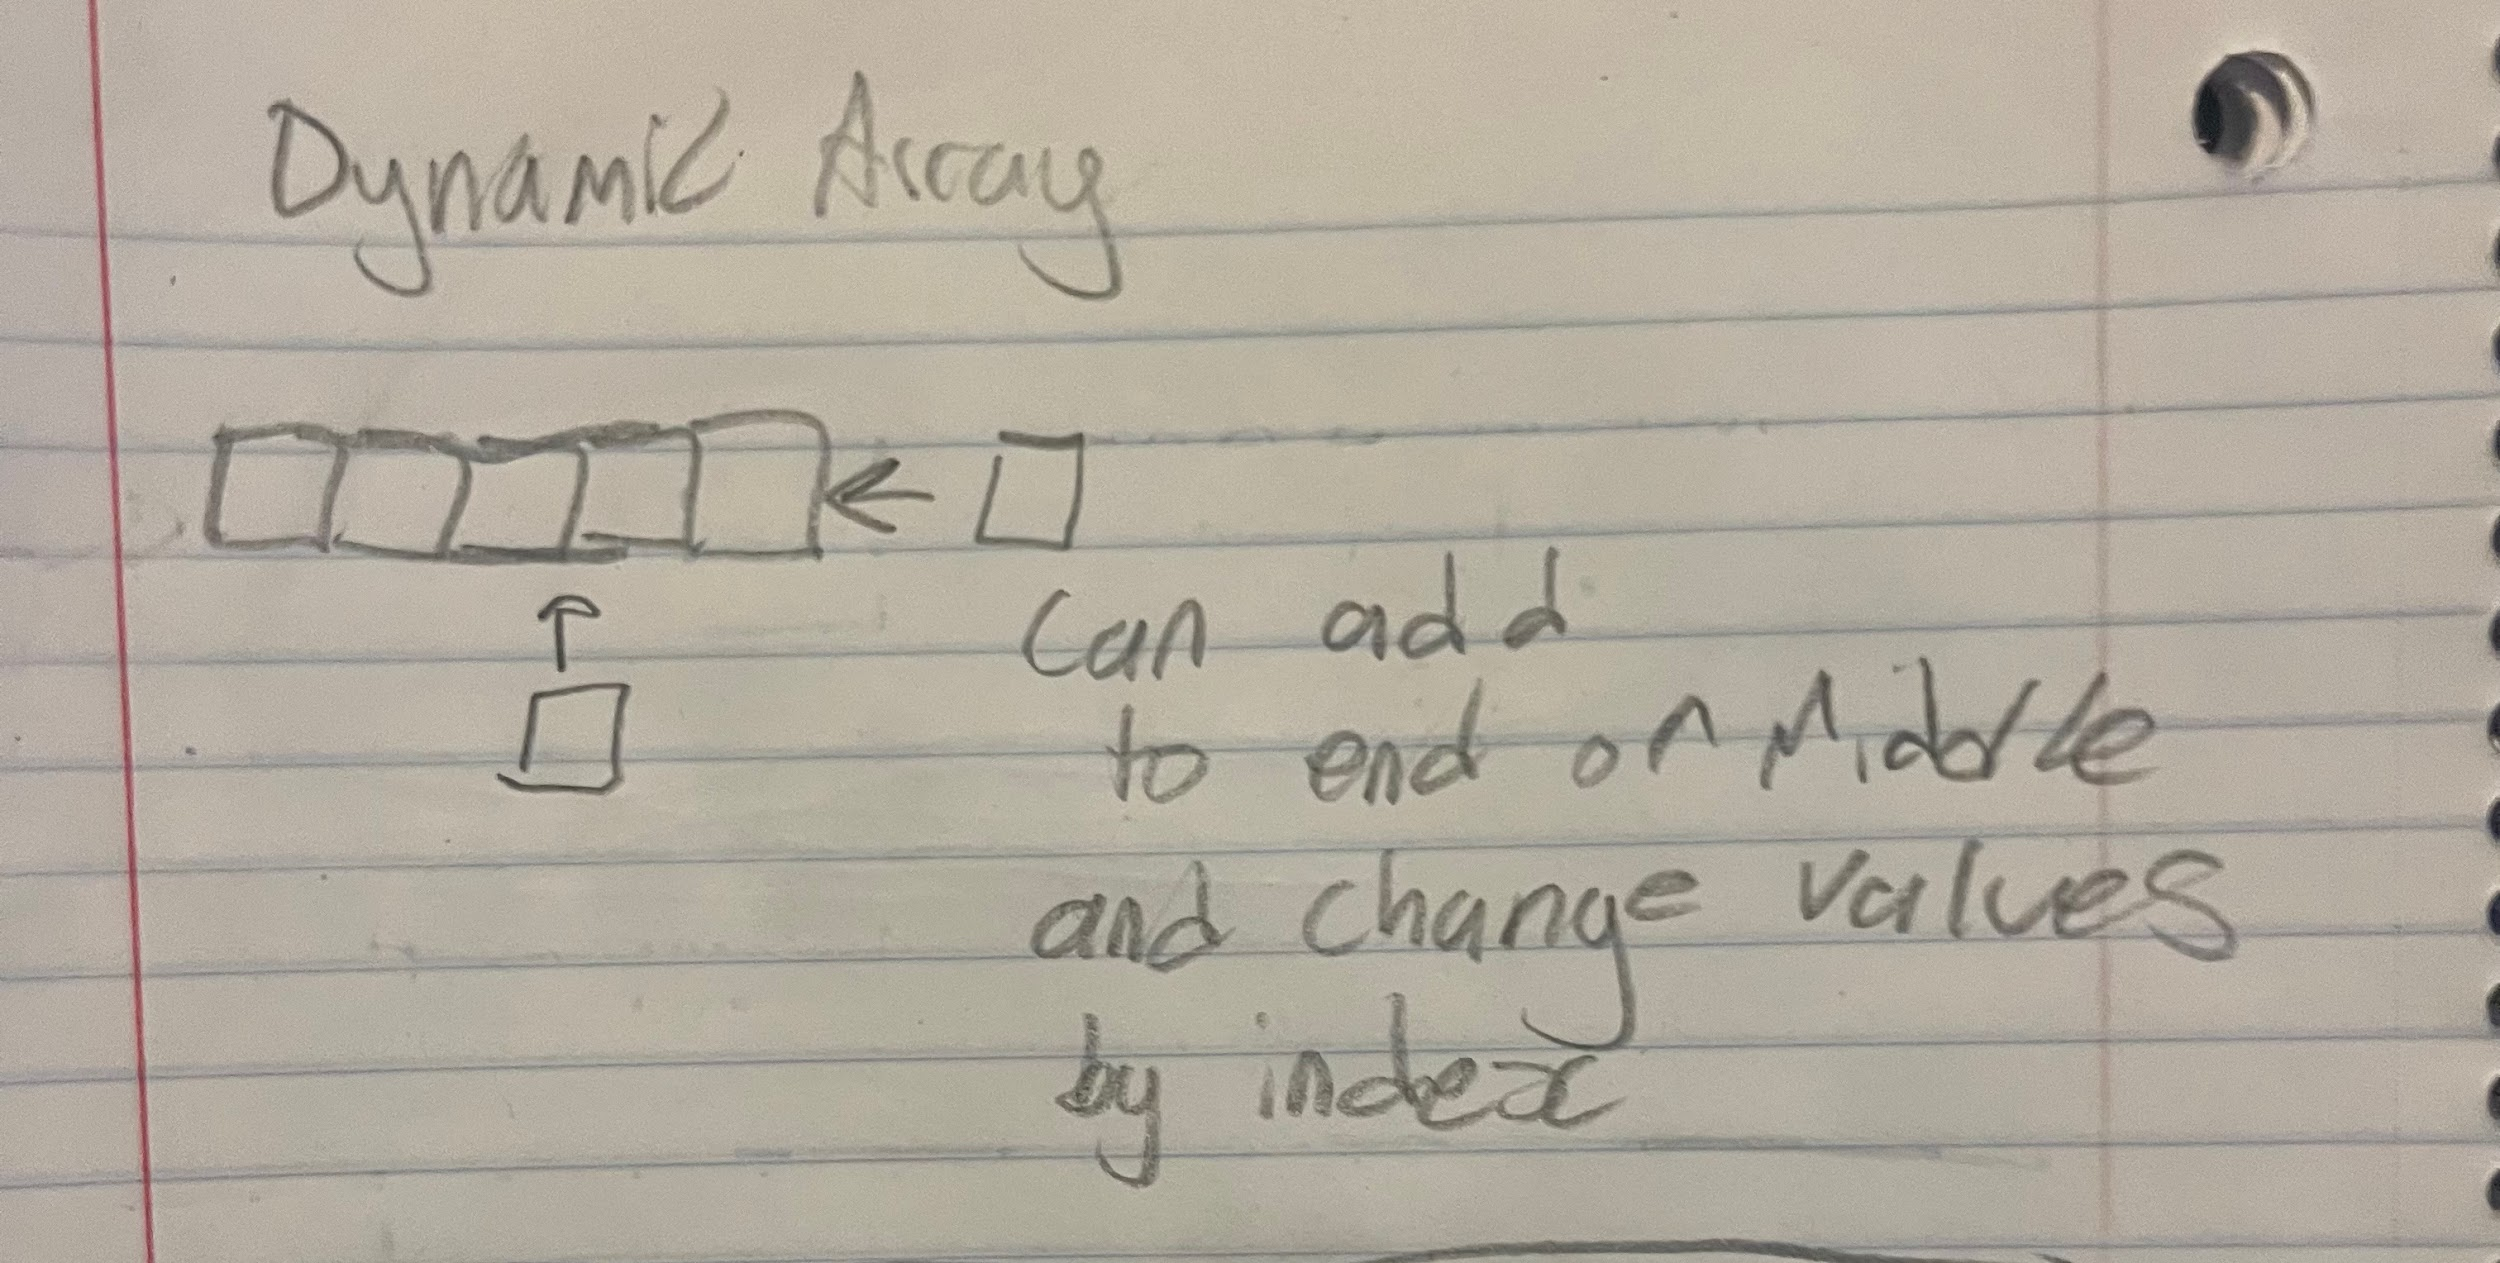 Dynamic Array
can add
to end or Middle
and change values
by index